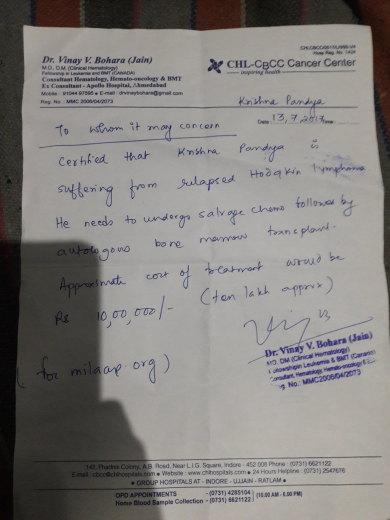 CHLCBCC/0617/L/998-V4
Hosp Reg. No. 1424
Dr. Vinay V. Bohara (Jain)
M.D., D.M. (Clinical Hematology)
Fellowship in Leukemia and BMT (CANADA)
Consultant Hematology, Hemato-oncology & BMT
Ex Consultant - Apollo Hospital, Ahmedabad
Mobile : 91044 97595 E-mail : drvinaybohara@gmail.com
Reg. No : MMC 2006/04/2073
CHL-CBCC Cancer Center
inspiring health
Krishna Pandya
Date : 13,7,2017
To whom it may concern
Certified that Krishna Pandya is
suffering from relapsed Hodgkin Lymphoma
He needs to undergo salvage chemo followed by
autologous bone marrow transplant.
Approximate cost of treatment would be
Rs 10,00,000/- (ten lakh approx)
Dr. Vinay V. Bohara (Jain)
MD, DM (Clinical Hematology)
Fellowship in Leukemia & BMT (Canada)
Consultant, Hematology, Hemato-oncology &
Reg. No.: MMC2006/04/2073
(for milaap.org)
143, Phadnis Colony, A.B. Road, Near L.I.G. Square, Indore - 452 008 Phone : (0731) 6621122
E-mail : cbcc@chlhospitals.com Website : www.chlhospitals.com 24 Hours Helpline : (0731) 2547676
GROUP HOSPITALS AT - INDORE - UJJAIN - RATLAM
OPD APPOINTMENTS - (0731) 4285104
Home Blood Sample Collection - (0731) 6621122
(10.00 AM - 6.00 PM)